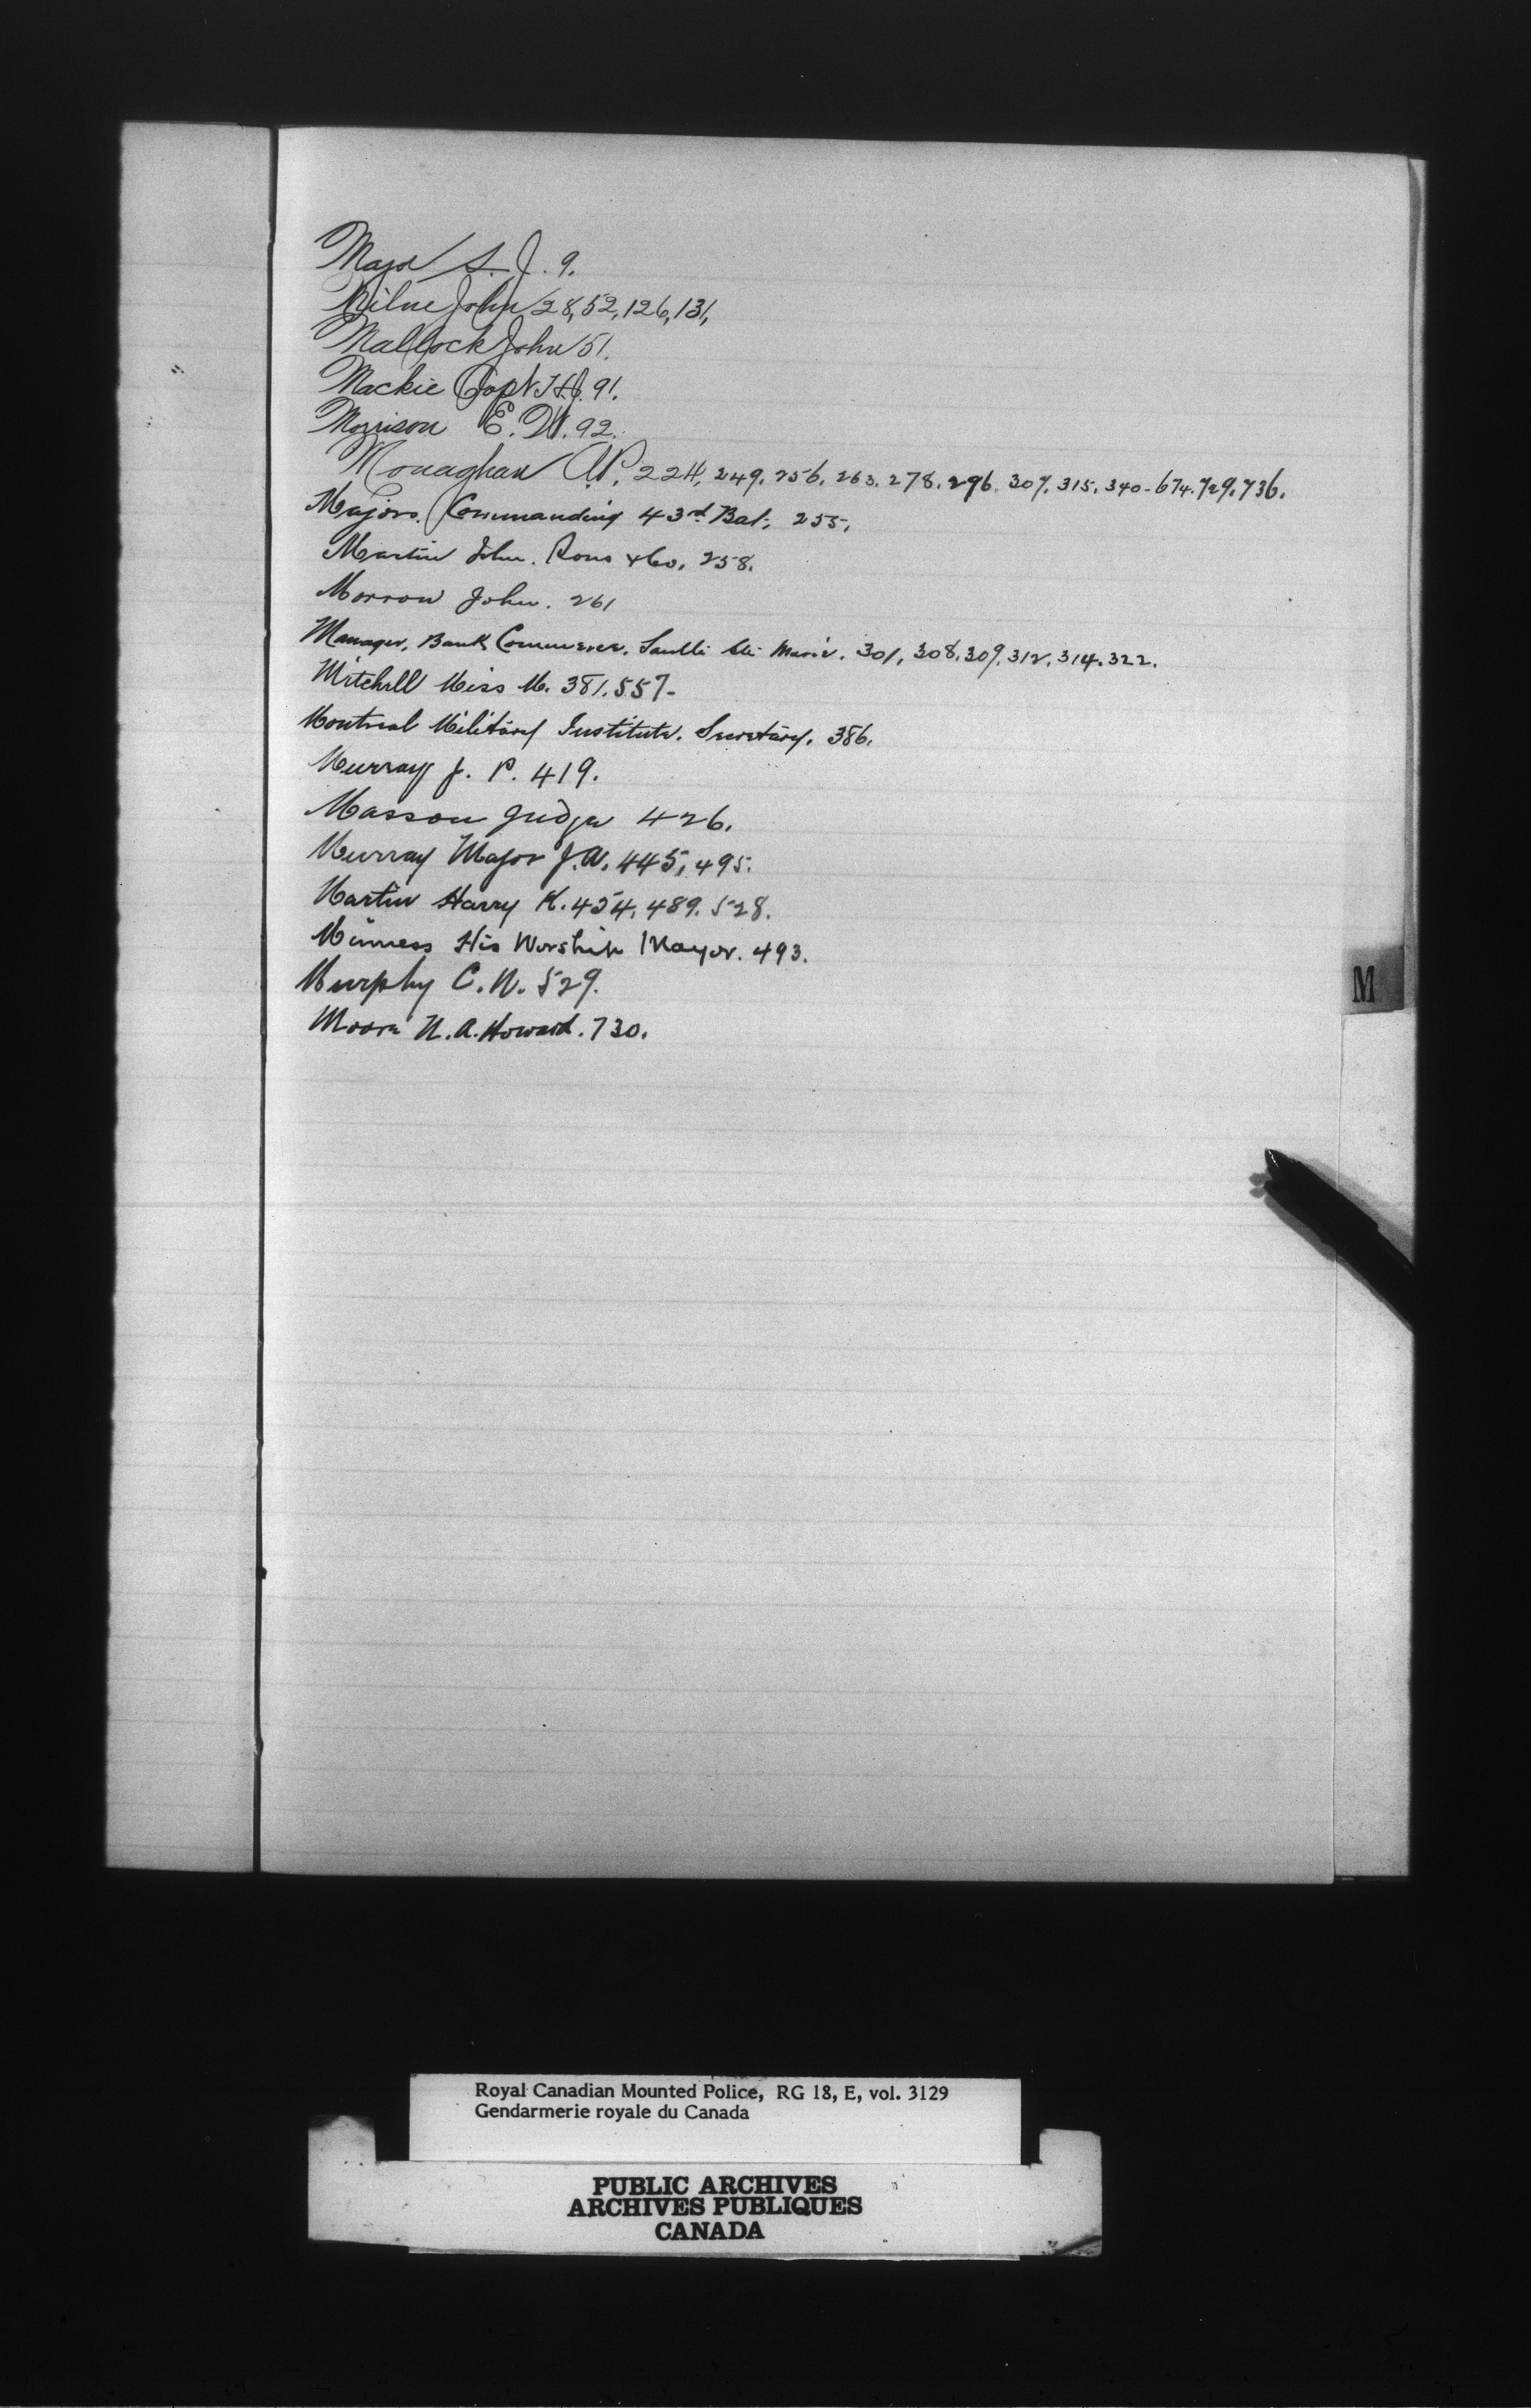 Major S. J. 9.
Milne John 28, 52, 126, 131,
Mallock John 51.
Mackie Capt H.J. 91.
Morrison E. W. 92.
Monaghan A.P. 224, 249. 256. 263. 278. 296. 307. 315. 340-674. 729. 736.
Majors. Commanding 43rd Bat; 255,
Martin John. Sons & Co, 258.
Morrow John. 261
Manager, Bank Commerce. Saulte Ste Marie. 301, 308. 309. 312. 314. 322.
Mitchell Miss M. 381. 557-
Montreal Military Institute. Secretary. 386.
Murray J. P. 419.
Masson Judge 426.
Murray Major J.A. 445, 495.
Martin Harry K. 454, 489. 528.
Minness His Worship Mayor. 493.
Murphy C. N. 529.
Moore N. A. Howard. 730.
M
Royal Canadian Mounted Police, RG 18, E, vol. 3129
Gendarmerie royale du Canada
PUBLIC ARCHIVES
ARCHIVES PUBLIQUES
CANADA